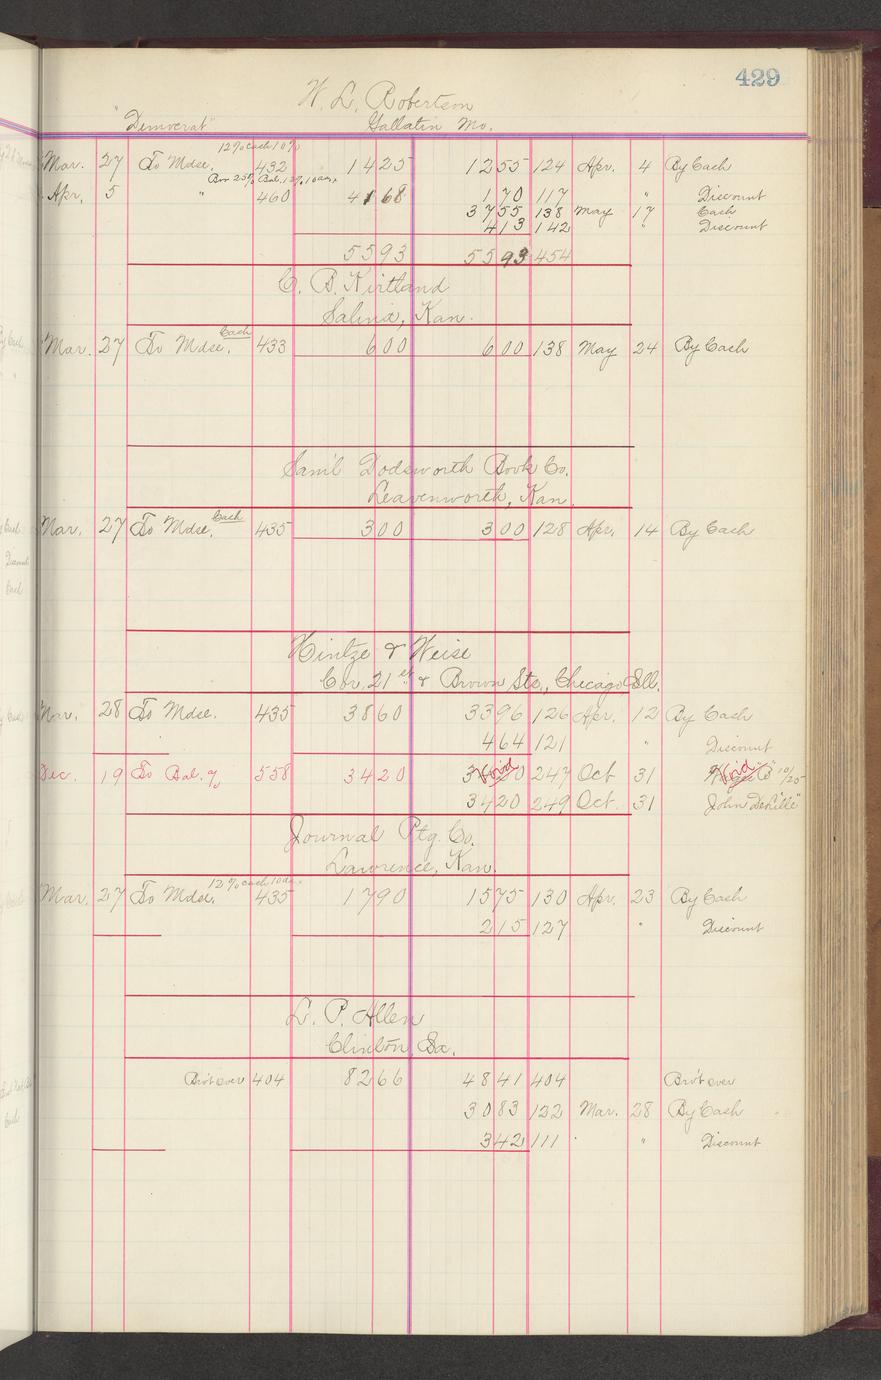 429
W. L. Robertson
"Democrat" Gallatin Mo.
12% Cash 10%
Mar. 27 To Mdse. 432 1425 1255 124 Apr. 4 By Cash
Apr. 5 " 460 4168 170 117 " Discount
3755 138 May 17 Cash
413 142 " Discount
5593 5593 454
C. B. Kirtland
Salina, Kan.
Mar. 27 To Mdse. Cash 433 600 600 138 May 24 By Cash
Sam'l Dodsworth Book Co.
Leavenworth, Kan.
Mar. 27 To Mdse. Cash 435 300 300 128 Apr. 14 By Cash
Hintze & Weise
Cor. 21st & Brown Sts., Chicago Ill.
Mar. 28 To Mdse. 435 3860 3396 126 Apr. 12 By Cash
464 121 " Discount
Dec. 19 To Bal. % 558 3420 Void 247 Oct 31 Void 10/25
3420 249 Oct. 31 John
Journal Ptg. Co.
Lawrence, Kan.
12% Cash 10 da.
Mar. 27 To Mdse. 435 1790 1575 130 Apr. 23 By Cash
215 127 " Discount
L. P. Allen
Clinton, Ia.
Bro't over 404 8266 4841 404 Bro't over
3083 122 Mar. 28 By Cash
342 111 " Discount